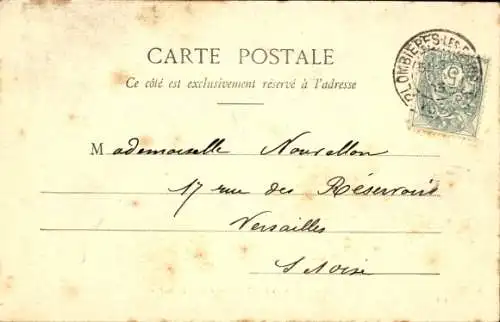 CARTE POSTALE
Ce côté est exclusivement réservé à l'adresse
PLOMBIÈRES-LES-
5
Mademoiselle Nourellon
17 rue des Réservoirs
Versailles
S et Oise